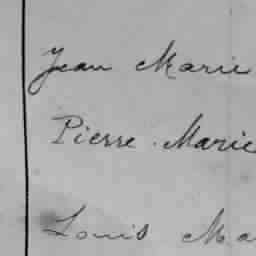 Jean Marie
Pierre. Marie
Louis Ma